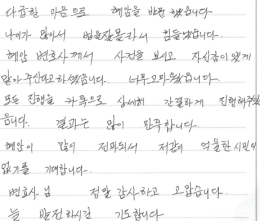 다급한 마음으로 혜안을 방문 했었습니다
나이가 많아서 법을잘몰라서 힘들었습니다
혜안 변호사께서 사건을 보시고 자신감이 있게
맡아 주신다고 하셨습니다 너무 고마웠습니다
모든 진행을 카톡으로 상세히 간결하게 진행해주셨
습니다. 결과는 많이 만족합니다
혜안이 많이 전파되서 저같이 억울한 시민이
없기를 기대합니다
변호사님 정말 감사하고 고맙습니다
늘 발전하시길 기도합니다